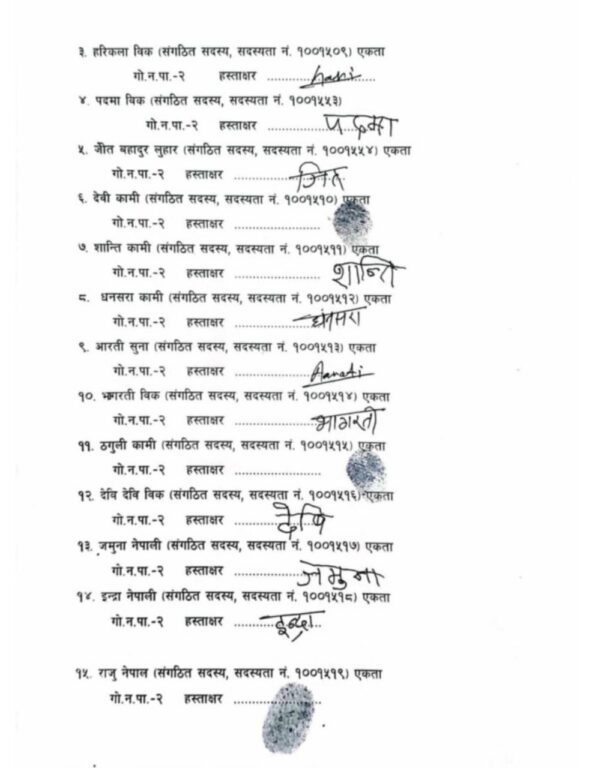 ३. हरिकला विक (संगठित सदस्य, सदस्यता नं. १००१५०९) एकता
गो.न.पा.-२ हस्ताक्षर ....................
४. पदमा विक (संगठित सदस्य, सदस्यता नं. १००१५५३)
गो.न.पा.-२ हस्ताक्षर .................... पदमा
५. जीत बहादुर लुहार (संगठित सदस्य, सदस्यता नं. १००१५५४) एकता
गो.न.पा.-२ हस्ताक्षर .................... जित
६. देवी कामी (संगठित सदस्य, सदस्यता नं. १००१५१०) एकता
गो.न.पा.-२ हस्ताक्षर ....................
७. शान्ति कामी (संगठित सदस्य, सदस्यता नं. १००१५११) एकता
गो.न.पा.-२ हस्ताक्षर .................... शान्ति
८. धनसरा कामी (संगठित सदस्य, सदस्यता नं. १००१५१२) एकता
गो.न.पा.-२ हस्ताक्षर .................... धनसरा
९. आरती सुना (संगठित सदस्य, सदस्यता नं. १००१५१३) एकता
गो.न.पा.-२ हस्ताक्षर ....................
१०. भागरती विक (संगठित सदस्य, सदस्यता नं. १००१५१४) एकता
गो.न.पा.-२ हस्ताक्षर .................... भागरती
११. ठगुली कामी (संगठित सदस्य, सदस्यता नं. १००१५१५) एकता
गो.न.पा.-२ हस्ताक्षर ....................
१२. देवि देवि विक (संगठित सदस्य, सदस्यता नं. १००१५१६) एकता
गो.न.पा.-२ हस्ताक्षर .................... देवि
१३. जमुना नेपाली (संगठित सदस्य, सदस्यता नं. १००१५१७) एकता
गो.न.पा.-२ हस्ताक्षर .................... जमुना
१४. इन्द्रा नेपाली (संगठित सदस्य, सदस्यता नं. १००१५१८) एकता
गो.न.पा.-२ हस्ताक्षर .................... इन्द्रा
१५. राजु नेपाल (संगठित सदस्य, सदस्यता नं. १००१५१९) एकता
गो.न.पा.-२ हस्ताक्षर ....................